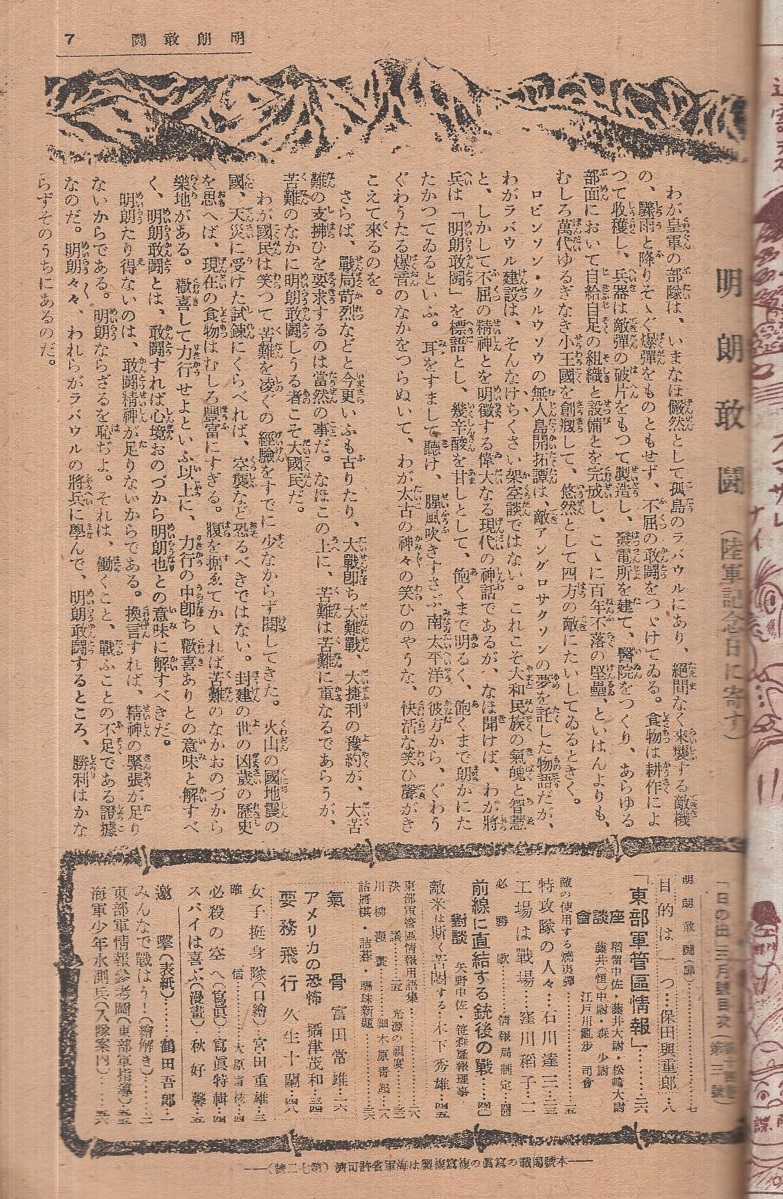 明朗敢鬪
7
明朗敢鬪（陸軍記念日に寄す）
わが皇軍の部隊は、いまなほ儼然として孤島のラバウルにあり、絕間なく來襲する敵機
の、驟雨と降りそゝぐ爆彈をものともせず、不屈の敢鬪をつゞけてゐる。食物は耕作によ
つて收穫し、兵器は敵彈の破片をもつて製造し、發電所を建て、醫院をつくり、あらゆる
部面において自給自足の組織と設備とを完成し、こゝに百年不落の堅壘、といはんよりも、
むしろ萬代ゆるぎなき小王國を創建して、悠然として四方の敵にたいしてゐるときく。
ロビンソン・クルウソウの無人島開拓譚は、敵アングロサクソンの夢を託した物語だが、
わがラバウル建設は、そんなけちくさい架空談ではない。これこそ大和民族の氣魄と智慧
と、しかして不屈の精神とを明徵する偉大なる現代の神話であるが、なほ聞けば、わが將
兵は「明朗敢鬪」を標語とし、幾辛酸を甘しとして、飽くまで明るく、飽くまで朗かにた
たかつてゐるといふ。耳をすまして聽け、腥風吹きすさぶ南太平洋の彼方から、ぐわう
ぐわうたる爆音のなかをつらぬいて、わが太古の神々の笑ひのやうな、快活な笑ひ聲がき
こえて來るのを。
さらば、戰局苛烈などと今更いふも古りたり、大戰卽ち大難戰、大捷利の豫約が、大苦
難の支拂ひを要求するのは當然の事だ。なほこの上に、苦難は苦難に重なるであらうが、
苦難のなかに明朗敢鬪しうる者こそ大國民だ。
わが國民は笑つて苦難を凌ぐの經驗をすでに少なからず閱してきた。火山の國地震の
國、天災に受けた試鍊にくらべれば、空襲など恐るべきではない。封建の世の凶歲の歷史
を思へば、現在の食物はむしろ豐富にすぎる。腹を据ゑてかゝれば苦難のなかおのづから
樂地がある。歡喜して力行せよといふ以上に、力行の中卽ち歡喜ありとの意味と解すべ
く、明朗敢鬪とは、敢鬪すれば心境おのづから明朗也との意味に解すべきだ。
明朗たり得ないのは、敢鬪精神が足りないからである。換言すれば、精神の緊張が足り
ないからである。明朗ならざるを恥ぢよ。それは、働くこと、戰ふことの不足である證據
なのだ。明朗々々、われらがラバウルの將兵に學んで、明朗敢鬪するところ、勝利はかな
らずそのうちにあるのだ。
「日の出」三月號目次
明朗敢鬪(扉)…七
目的は一つ…保田與重郎…八
「東部軍管區情報」…二六
座談會
稻留中佐・藤井大尉・松崎大尉
藤井(恒)中尉・森少尉
江戶川亂步 司會
敵の使用する燒夷彈…五
特攻隊の人々…石川達三…三
工場は戰場…窪川稻子…二
必勝歌…情報局制定…四
前線に直結する銃後の戰…四
對談 矢野中佐・笹森厚報理事
敵米は斯く苦悶する…木下秀雄…四五
東部軍管區情報用語集
詰將棋・詰碁・聯珠新題
氣骨 富田常雄…六
アメリカの恐怖 攝津茂和…三四
要務飛行 久生十蘭…四八
女子挺身隊(口繪)…宮田重雄…三
必殺の空へ(寫眞)…寫眞特輯…四
スパイは喜ぶ(漫畫)…秋好馨…五
邀擊(表紙)…鶴田吾郎…一
みんなで戰はう!(繪解き)…二
東部軍情報參考圖(東部軍指導)…五五
海軍少年水測兵(入隊案內)…五六
本號揭載の寫眞の複寫複製は海軍省許可濟(第七二號)